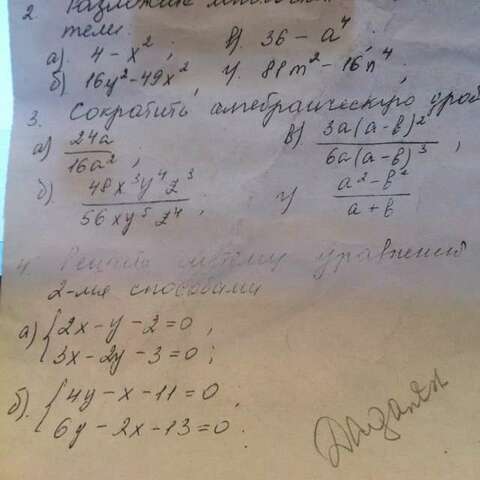 2. Разложить
тели:
а). 4 - x²; в). 36 - a⁴;
б). 16y² - 49x², г). 81m² - 16n⁴;
3. Сократить алгебраическую дроб
а) 24a/16a²; в) 3a(a-b)²/6a(a-b)³,
б). 48x³y⁴z³/56xy⁵z⁴; г) a²-b²/a+b
4. Решить систему уравнений
2-мя способами
а) {2x - y - 2 = 0,
3x - 2y - 3 = 0;
б). {4y - x - 11 = 0,
6y - 2x - 13 = 0.